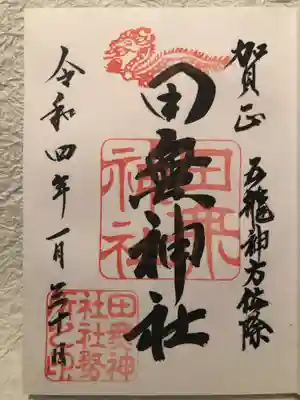 賀正
五龍神方位除
田無神社
田無神社
令和四年一月
田無神
社社務
所之印